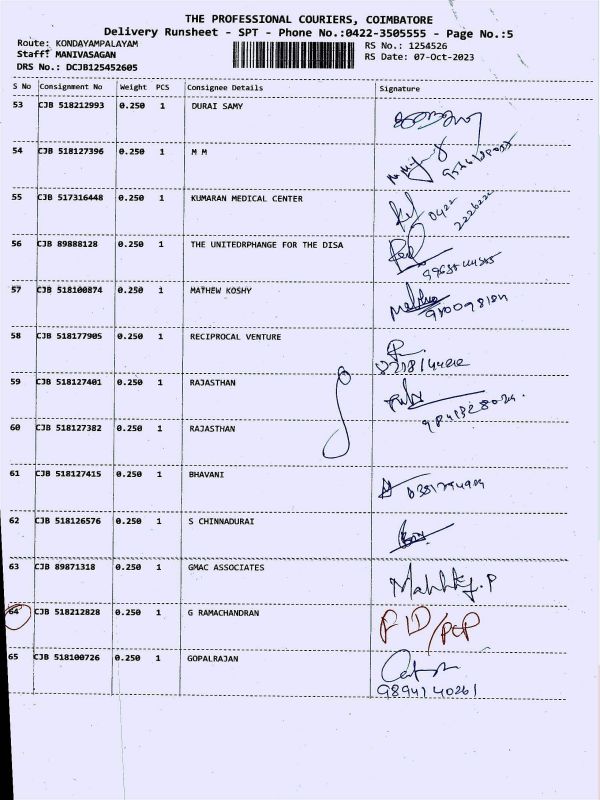 THE PROFESSIONAL COURIERS, COIMBATORE
Delivery Runsheet - SPT - Phone No.:0422-3505555 - Page No.:5
Route: KONDAYAMPALAYAM
RS No.: 1254526
Staff: MANIVASAGAN
RS Date: 07-Oct-2023
DRS No.: DCJB125452605
S No Consignment No Weight PCS Consignee Details Signature
53 CJB 518212993 0.250 1 DURAI SAMY
54 CJB 518127396 0.250 1 M M
55 CJB 517316448 0.250 1 KUMARAN MEDICAL CENTER
0422
56 CJB 89888128 0.250 1 THE UNITEDRPHANGE FOR THE DISA
57 CJB 518100874 0.250 1 MATHEW KOSHY
58 CJB 518177905 0.250 1 RECIPROCAL VENTURE
59 CJB 518127401 0.250 1 RAJASTHAN
60 CJB 518127382 0.250 1 RAJASTHAN
61 CJB 518127415 0.250 1 BHAVANI
62 CJB 518126576 0.250 1 S CHINNADURAI
63 CJB 89871318 0.250 1 GMAC ASSOCIATES
64 CJB 518212828 0.250 1 G RAMACHANDRAN
65 CJB 518100726 0.250 1 GOPALRAJAN
9894140261